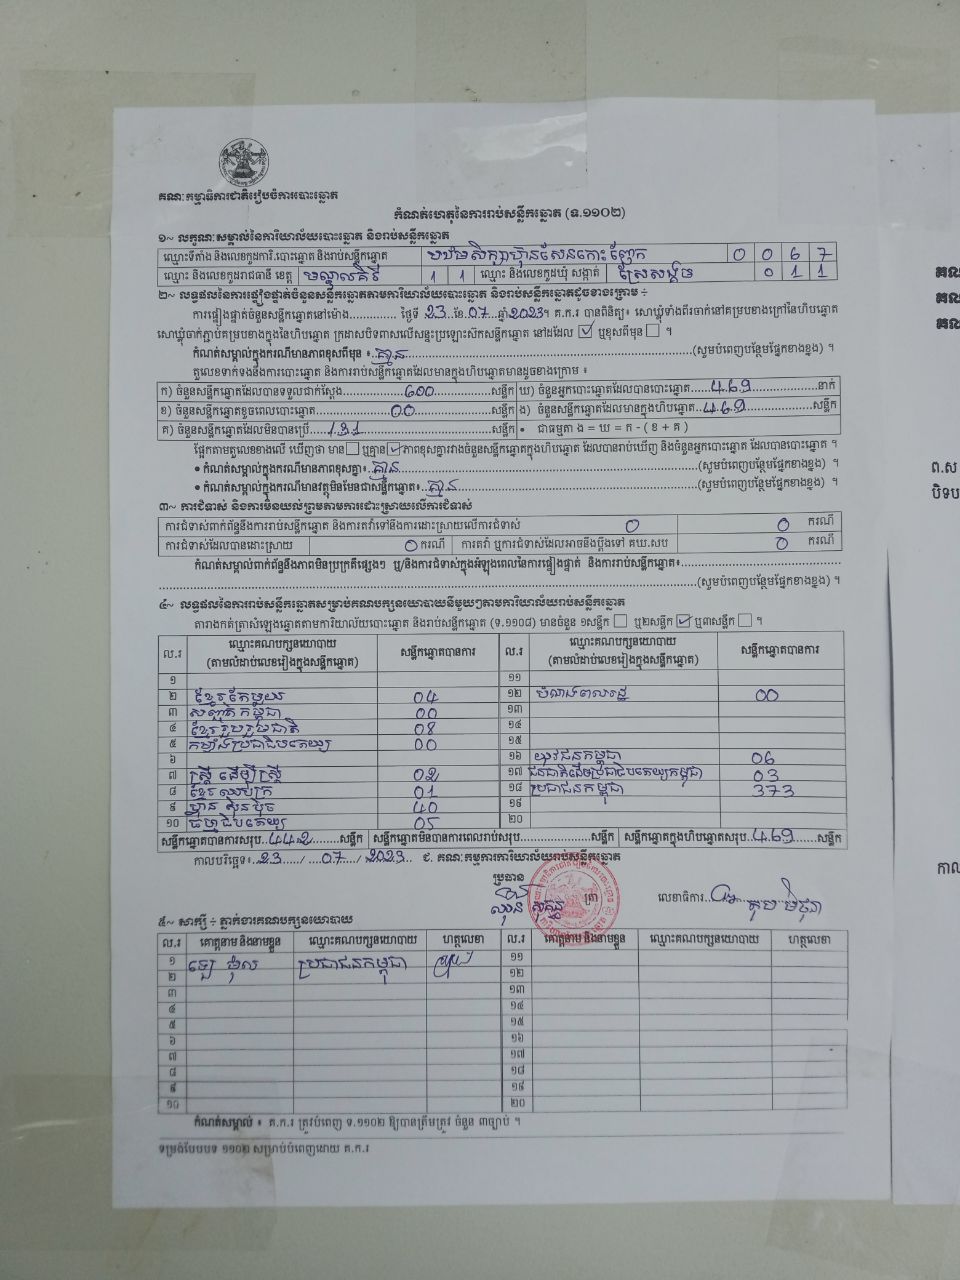 គណៈកម្មាធិការជាតិរៀបចំការបោះឆ្នោត
កំណត់ហេតុនៃការរាប់សន្លឹកឆ្នោត (ទ.១១០២)
១~ លក្ខណៈសម្គាល់នៃការិយាល័យបោះឆ្នោត និងរាប់សន្លឹកឆ្នោត
ឈ្មោះទីតាំង និងលេខកូដការិ.បោះឆ្នោត និងរាប់សន្លឹកឆ្នោត បឋមសិក្សាហ៊ុនសែនកោះញែក 0 0 6 7
ឈ្មោះ និងលេខកូដរាជធានី ខេត្ត មណ្ឌលគិរី 1 1 ឈ្មោះ និងលេខកូដឃុំ សង្កាត់ ស្រែសង្គម 0 1 1
២~ លទ្ធផលនៃការផ្ទៀងផ្ទាត់ចំនួនសន្លឹកឆ្នោតតាមការិយាល័យបោះឆ្នោត និងរាប់សន្លឹកឆ្នោតដូចខាងក្រោម ÷
ការផ្ទៀងផ្ទាត់ចំនួនសន្លឹកឆ្នោតនៅម៉ោង.............. ថ្ងៃទី 23 ..ខែ.07 ..ឆ្នាំ2023។ គ.ក.រ បានពិនិត្យ៖ សោឃ្លុំទាំងពីរចាក់នៅគម្របខាងក្រៅនៃហិបឆ្នោត
សោឃ្លុំចាក់ភ្ជាប់គម្របខាងក្នុងនៃហិបឆ្នោត ក្រដាសបិទពាសលើសន្ទះប្រឡោះសឹកសន្លឹកឆ្នោត នៅដដែល ☑ ឬខុសពីមុន ☐ ។
កំណត់សម្គាល់ក្នុងករណីមានភាពខុសពីមុន ៖..គ្មាន..............................(សូមបំពេញបន្ថែមផ្នែកខាងខ្នង) ។
តួលេខទាក់ទងនឹងការបោះឆ្នោត និងការរាប់សន្លឹកឆ្នោតដែលមានក្នុងហិបឆ្នោតមានដូចខាងក្រោម ៖
ក) ចំនួនសន្លឹកឆ្នោតដែលបានទទួលជាក់ស្តែង..........600..........សន្លឹក ឃ) ចំនួនអ្នកបោះឆ្នោតដែលបានបោះឆ្នោត.....469..........នាក់
ខ) ចំនួនសន្លឹកឆ្នោតខូចពេលបោះឆ្នោត..........00..........សន្លឹក ង) ចំនួនសន្លឹកឆ្នោតដែលមានក្នុងហិបឆ្នោត..469..........សន្លឹក
គ) ចំនួនសន្លឹកឆ្នោតដែលមិនបានប្រើ....131..........សន្លឹក • ជាធម្មតា ង = ឃ = ក - ( ខ + គ )
ផ្អែកតាមតួលេខខាងលើ ឃើញថា មាន ☐ ឬគ្មាន ☑ ភាពខុសគ្នារវាងចំនួនសន្លឹកឆ្នោតក្នុងហិបឆ្នោត ដែលបានរាប់ឃើញ និងចំនួនអ្នកបោះឆ្នោត ដែលបានបោះឆ្នោត ។
• កំណត់សម្គាល់ក្នុងករណីមានភាពខុសគ្នា៖..គ្មាន..............................(សូមបំពេញបន្ថែមផ្នែកខាងខ្នង) ។
• កំណត់សម្គាល់ក្នុងករណីមានវត្ថុមិនមែនជាសន្លឹកឆ្នោត៖..គ្មាន..............................(សូមបំពេញបន្ថែមផ្នែកខាងខ្នង) ។
៣~ ការជំទាស់ និងការមិនយល់ព្រមតាមការដោះស្រាយលើការជំទាស់
ការជំទាស់ពាក់ព័ន្ធនឹងការរាប់សន្លឹកឆ្នោត និងការតវ៉ាទៅនឹងការដោះស្រាយលើការជំទាស់ 0 0 ករណី
ការជំទាស់ដែលបានដោះស្រាយ 0 ករណី ការតវ៉ា ឬការជំទាស់ដែលអាចនឹងប្តឹងទៅ គឃ.សប 0 ករណី
កំណត់សម្គាល់ពាក់ព័ន្ធនឹងភាពមិនប្រក្រតីផ្សេងៗ ឬ/និងការជំទាស់ក្នុងអំឡុងពេលនៃការផ្ទៀងផ្ទាត់ និងការរាប់សន្លឹកឆ្នោត៖..............................
..............................(សូមបំពេញបន្ថែមផ្នែកខាងខ្នង) ។
៤~ លទ្ធផលនៃការរាប់សន្លឹកឆ្នោតសម្រាប់គណបក្សនយោបាយនីមួយៗតាមការិយាល័យរាប់សន្លឹកឆ្នោត
តារាងកត់ត្រាសំឡេងឆ្នោតតាមការិយាល័យបោះឆ្នោត និងរាប់សន្លឹកឆ្នោត (ទ.១១០៨) មានចំនួន ១សន្លឹក ☐ ឬ២សន្លឹក ☑ ឬ៣សន្លឹក ☐ ។
ល.រ ឈ្មោះគណបក្សនយោបាយ (តាមលំដាប់លេខរៀងក្នុងសន្លឹកឆ្នោត) សន្លឹកឆ្នោតបានការ ល.រ ឈ្មោះគណបក្សនយោបាយ (តាមលំដាប់លេខរៀងក្នុងសន្លឹកឆ្នោត) សន្លឹកឆ្នោតបានការ
១ ១១
២ ខ្មែរតែមួយ 04 ១២ បំណងពលរដ្ឋ 00
៣ សញ្ជាតិកម្ពុជា 00 ១៣
៤ ខ្មែររួបរួមជាតិ 08 ១៤
៥ កម្លាំងប្រជាធិបតេយ្យ 00 ១៥
៦ ១៦ យុវជនកម្ពុជា 06
៧ ស្ត្រីដើម្បីស្ត្រី 02 ១៧ ជនជាតិដើមប្រជាធិបតេយ្យកម្ពុជា 03
៨ ខ្មែរឈប់ក្រ 01 ១៨ ប្រជាជនកម្ពុជា 373
៩ ហ្វ៊ុនស៊ិនប៉ិច 40 ១៩
១០ ធម្មាធិបតេយ្យ 05 ២០
សន្លឹកឆ្នោតបានការសរុប..442........សន្លឹក សន្លឹកឆ្នោតមិនបានការពេលរាប់សរុប...............សន្លឹក សន្លឹកឆ្នោតក្នុងហិបឆ្នោតសរុប.469......សន្លឹក
កាលបរិច្ឆេទ៖..23...../ ....07...../ 2023.. ជ. គណៈកម្មការការិយាល័យរាប់សន្លឹកឆ្នោត
ប្រធាន
ត្រា លេខាធិការ
៥~ សាក្សី ÷ ភ្នាក់ងារគណបក្សនយោបាយ
ល.រ គោត្តនាម និងនាមខ្លួន ឈ្មោះគណបក្សនយោបាយ ហត្ថលេខា ល.រ គោត្តនាម និងនាមខ្លួន ឈ្មោះគណបក្សនយោបាយ ហត្ថលេខា
១ ឡេ ម៉ុល ប្រជាជនកម្ពុជា ១១
២ ១២
៣ ១៣
៤ ១៤
៥ ១៥
៦ ១៦
៧ ១៧
៨ ១៨
៩ ១៩
១០ ២០
កំណត់សម្គាល់ ៖ គ.ក.រ ត្រូវបំពេញ ទ.១១០២ ឱ្យបានត្រឹមត្រូវ ចំនួន ៣ច្បាប់ ។
ទម្រង់បែបបទ ១១០២ សម្រាប់បំពេញដោយ គ.ក.រ